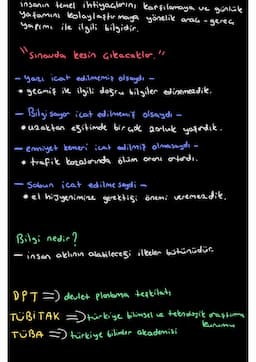 insanın temel ihtiyaçlarını karşılamaya ve günlük
yaşamını kolaylaştırmaya yönelik araç-gereç
yapımı ile ilgili bilgidir.
"Sınavda kesin çıkacaklar."
- Yazı icat edilmemiş olsaydı -
• geçmiş ile ilgili doğru bilgiler edinemezdik.
- Bilgisayar icat edilmemiş olsaydı -
• uzaktan eğitimde birçok zorluk yaşardık.
- emniyet kemeri icat edilmiş olmasaydı -
• trafik kazalarında ölüm oranı artardı.
- Sabun icat edilmeseydi -
• el hijyenimize gerektiği önemi veremezdik.
Bilgi nedir?
- insan aklının alabileceği ilkeler bütünüdür.
DPT => devlet planlama teşkilatı
TÜBİTAK => türkiye bilimsel ve teknolojik araştırma
kurumu
TÜBA => türkiye bilimler akademisi